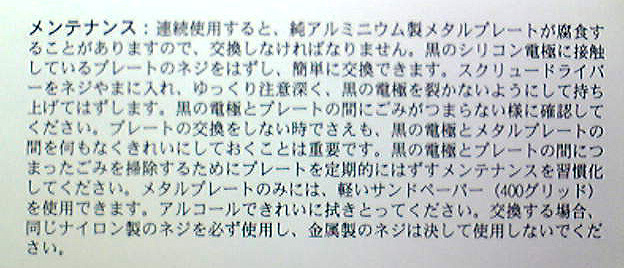 メンテナンス：連続使用すると、純アルミニウム製メタルプレートが腐食す
ることがありますので、交換しなければなりません。黒のシリコン電極に接触
しているプレートのネジをはずし、簡単に交換できます。スクリュードライバ
ーをネジやまに入れ、ゆっくり注意深く、黒の電極を裂かないようにして持ち
上げてはずします。黒の電極とプレートの間にごみがつまらない様に確認して
ください。プレートの交換をしない時でさえも、黒の電極とメタルプレートの
間を何もなくきれいにしておくことは重要です。黒の電極とプレートの間につ
まったごみを掃除するためにプレートを定期的にはずすメンテナンスを習慣化
してください。メタルプレートのみには、軽いサンドペーパー（400グリッド）
を使用できます。アルコールできれいに拭きとってください。交換する場合、
同じナイロン製のネジを必ず使用し、金属製のネジは決して使用しないでくだ
さい。